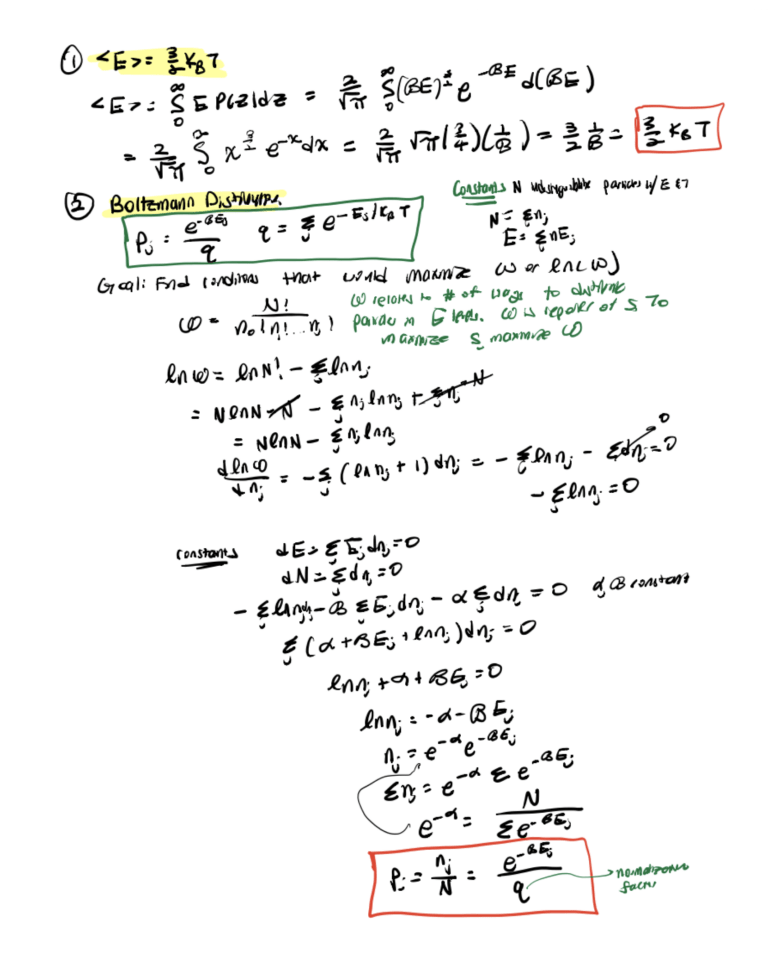 ① <E> = 3/2 K_B T
<E> = ∫_0^∞ E P(E)dE = 2/√π ∫_0^∞ (βE)^{3/2} e^{-βE} d(βE)
= 2/√π ∫_0^∞ x^{3/2} e^{-x}dx = 2/√π √π(3/4)(1/β) = 3/2 1/β = 3/2 K_B T
② Boltzmann Distribution
P_j = e^{-βE_j}/q q = Σ_j e^{-E_j/K_B T}
Constants N particles w/ E & T
N = Σn_j
E = ΣnE_j
Goal: Find conditions that would maximize ω or ln(ω)
ω = N!/n_0! n_1! ... n_j!
ω relates to # of ways to distribute
particles in E levels. ω is of S. To
maximize S, maximize ω
ln ω = ln N! - Σ_j ln n_j
= N ln N - N - Σ_j n_j ln n_j + Σ n_j = N
= N ln N - Σ_j n_j ln n_j
d ln ω/d n_j = -Σ_j (ln n_j + 1) dn_j = - Σ_j ln n_j - Σ dn_j = 0 0
- Σ_j ln n_j = 0
constants dE = Σ_j E_j dn_j = 0
dN = Σ_j dn_j = 0
- Σ_j ln n_j - β Σ_j E_j dn_j - α Σ_j dn_j = 0 α, β constant
Σ_j (α + βE_j + ln n_j) dn_j = 0
ln n_j + α + βE_j = 0
ln n_j = -α - βE_j
n_j = e^{-α} e^{-βE_j}
Σn_j = e^{-α} Σ e^{-βE_j}
e^{-α} = N/Σe^{-βE_j}
P_j = n_j/N = e^{-βE_j}/q
normalization
factor